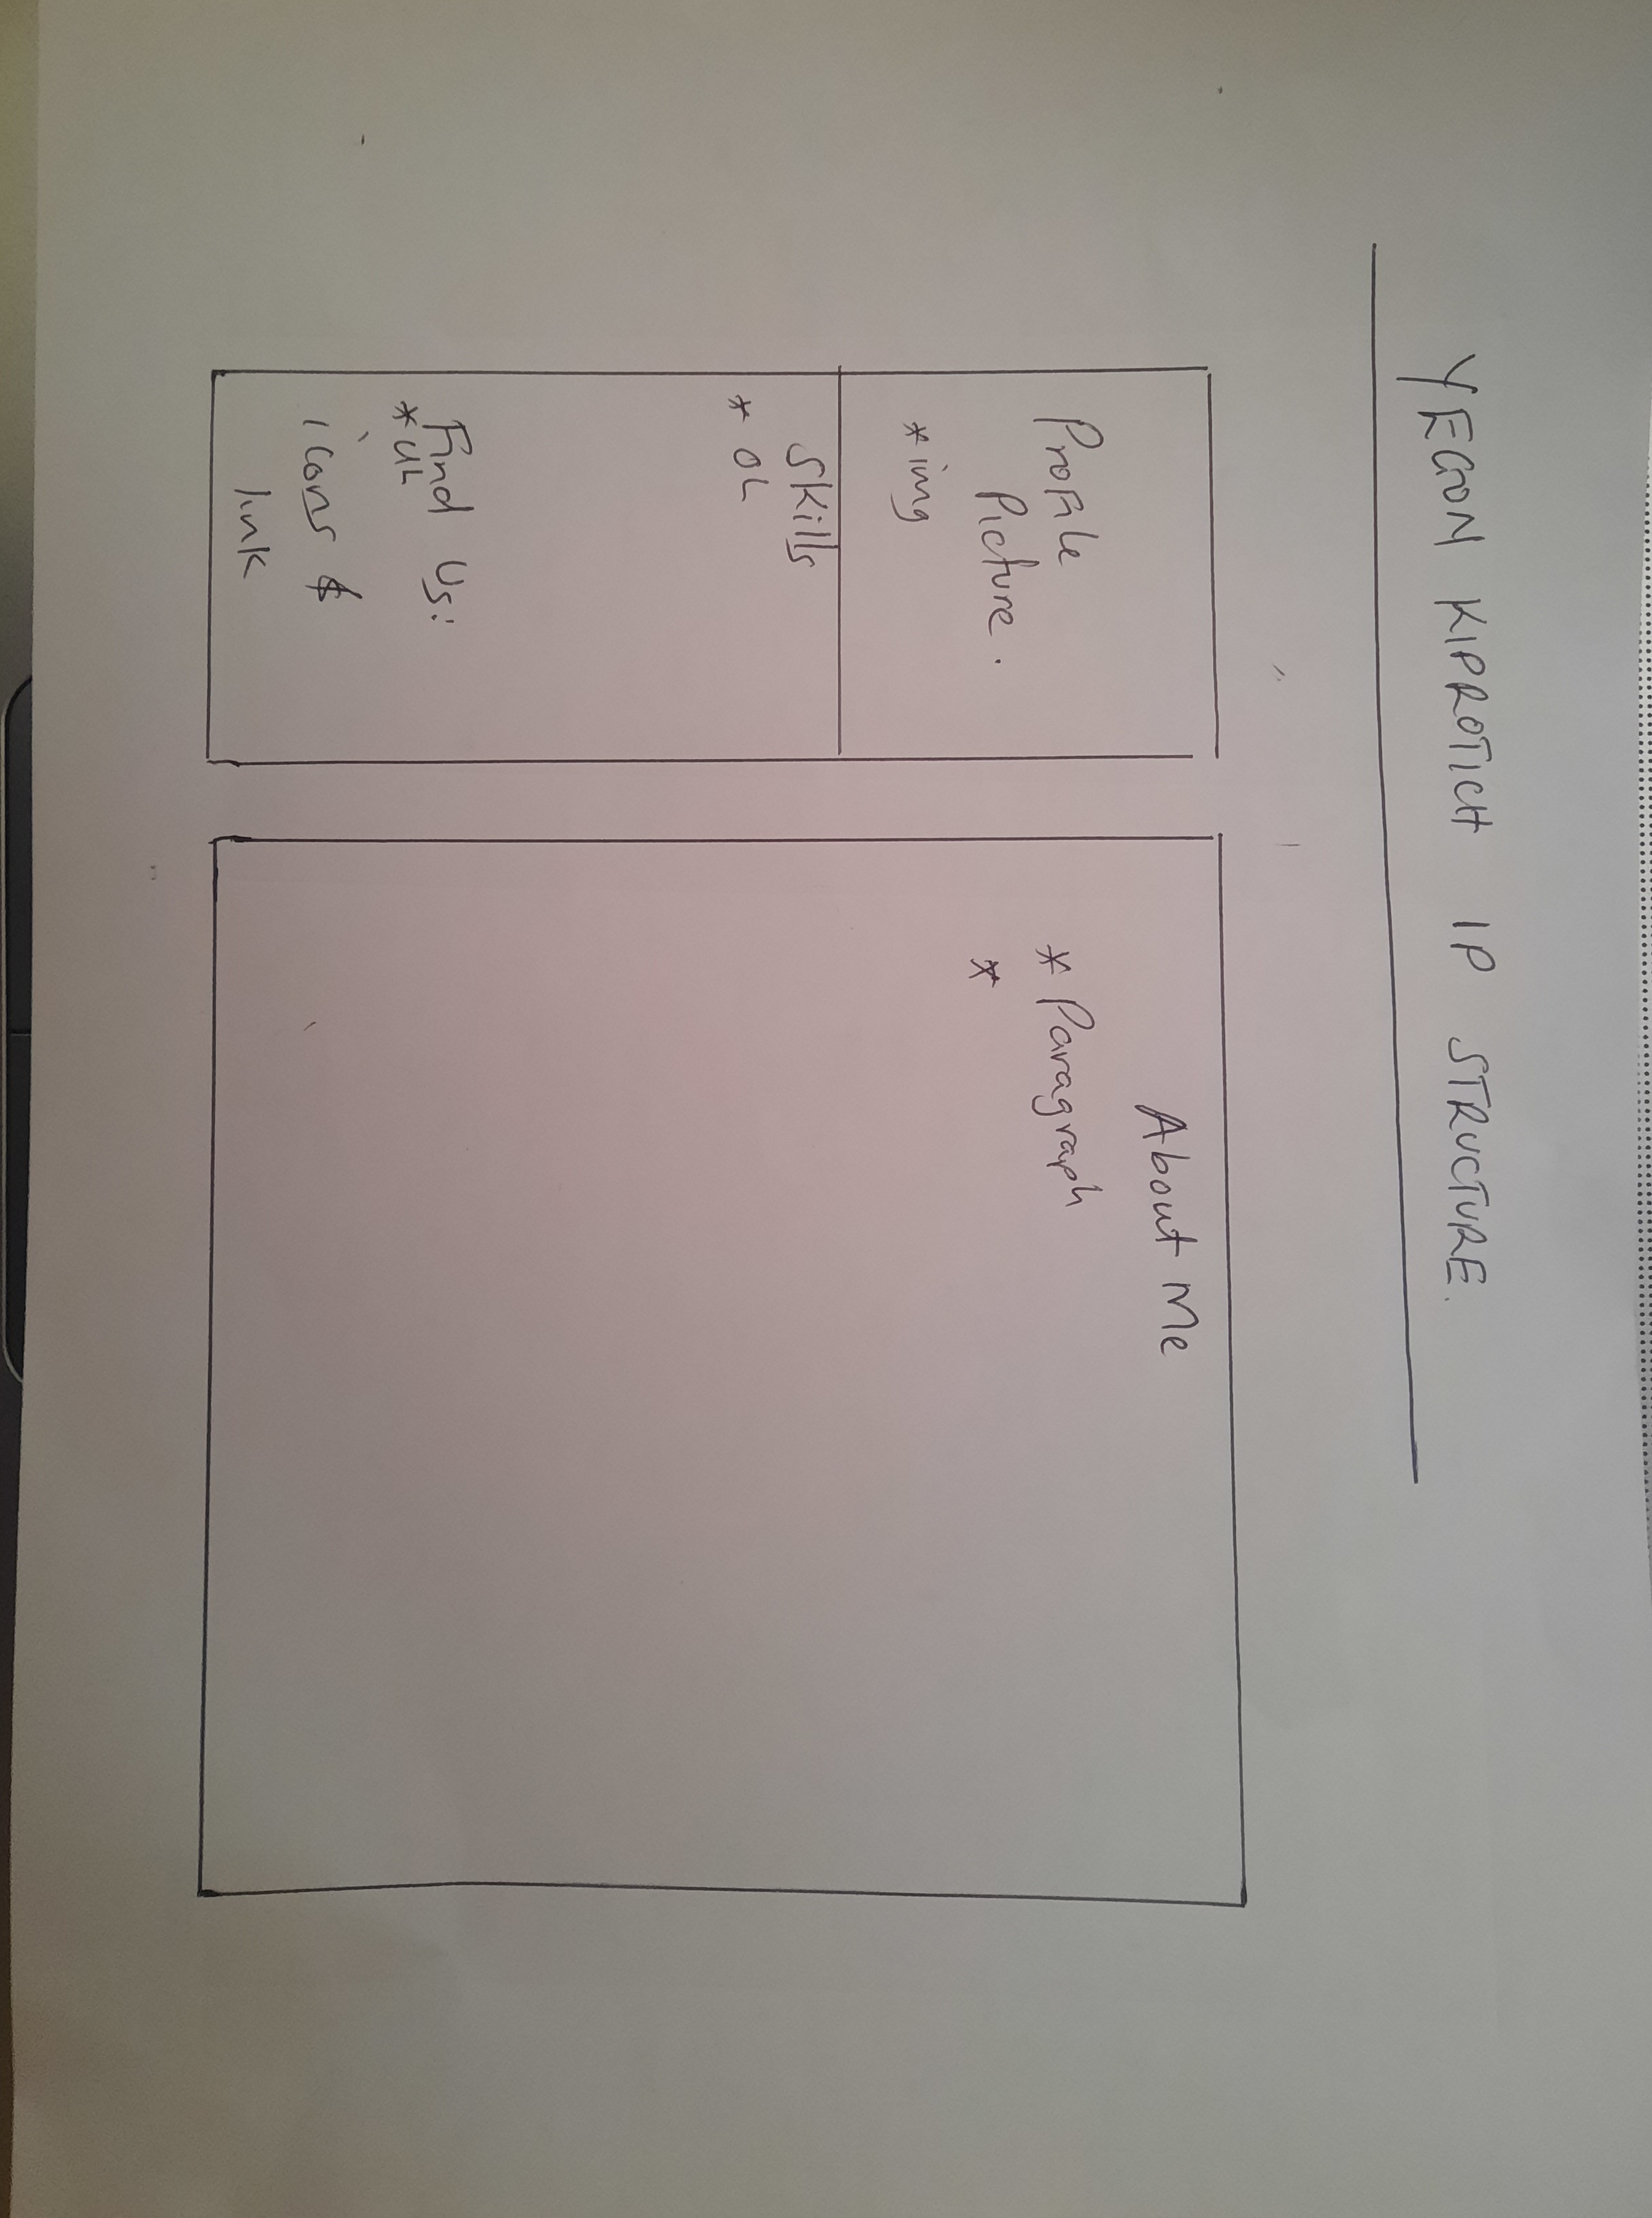 YEGON KIPROTICH IP STRUCTURE.
Profile
Picture.
* img
Skills
* OL
Find Us:
* UL
icons &
link
About Me
* Paragraph
*